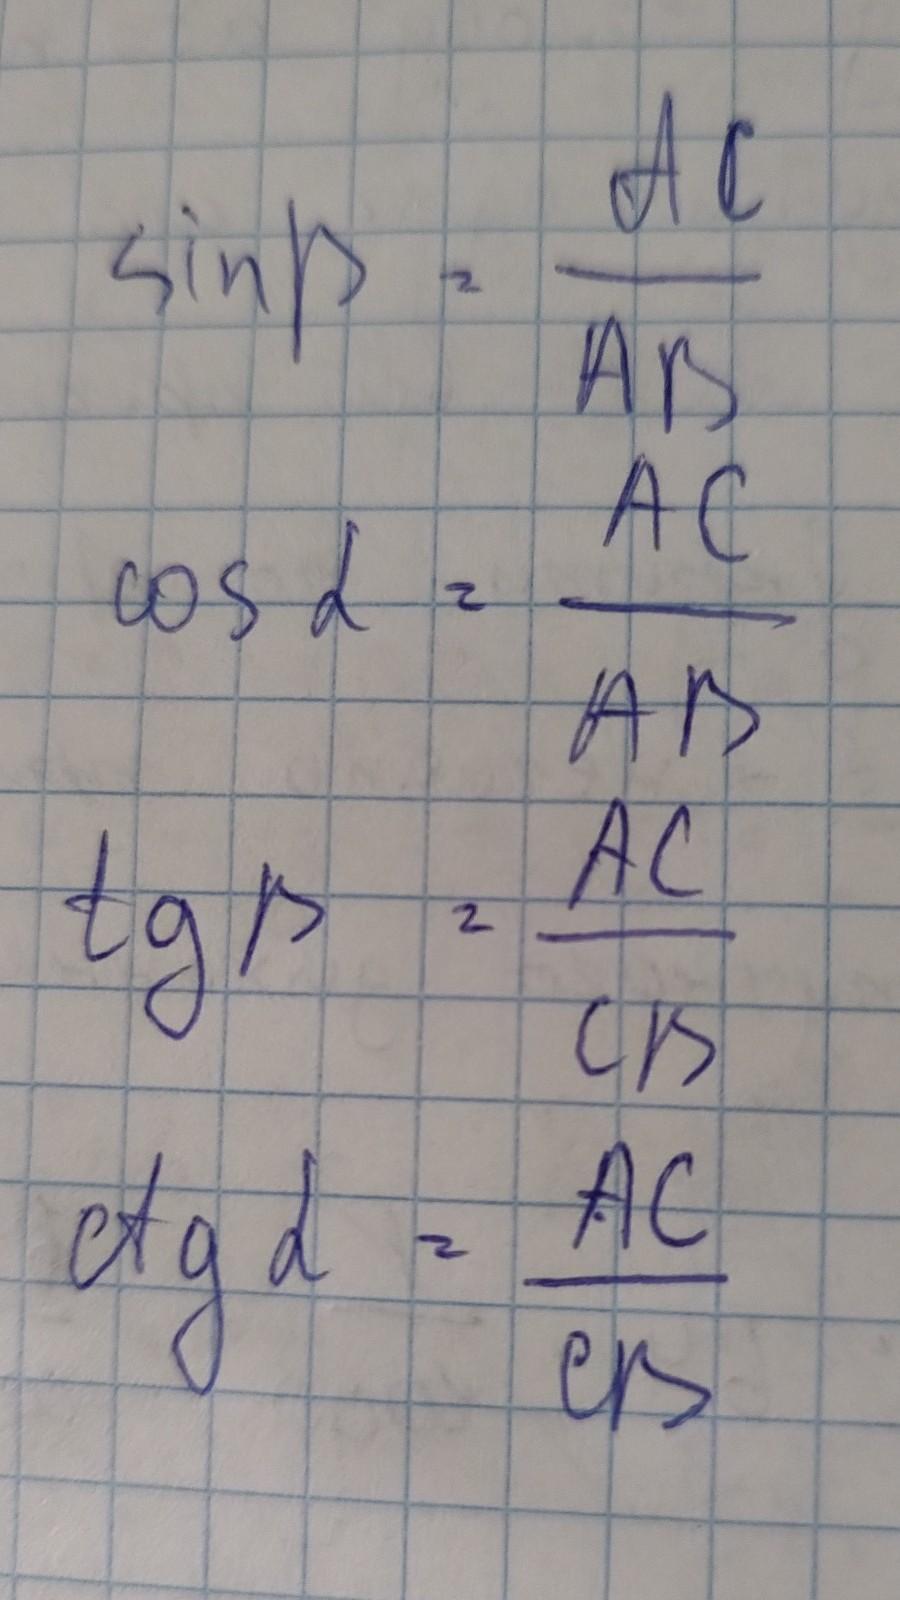 sinβ = AC/AB
cos α = AC/AB
tg β = AC/CB
ctg α = AC/CB